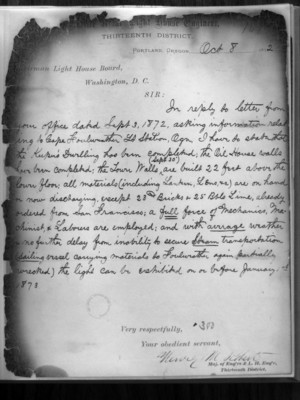 Light House Engineer,
THIRTEENTH DISTRICT,
PORTLAND OREGON Oct 8 2
Light House Board,
Washington, D. C.
SIR:
In reply to letter from
your office dated Sept 3, 1872, asking information
to Cape Foulweather Lt Station Ogn I have to state that
the Keeper's Dwelling has been completed; the Oil House walls
(Sept 30")
have been completed; the Tower Walls, are built 22 feet above the
floor; all materials (including Lantern, &c) are on hand
or now discharging, except Bricks & 25 Bbls Lime, already
ordered from San Francisco; a full force of Mechanics,
& Laborers are employed; and with average weather
further delay from inability to secure Steam transportation
sailing vessel carrying materials to Foulweather again partially
wrecked) the light can be exhibited on or before January 1
1873
Very respectfully,
Your obedient servant,
Henry M Robert
Maj. of Eng'rs & L. H. Eng'r,
Thirteenth District.